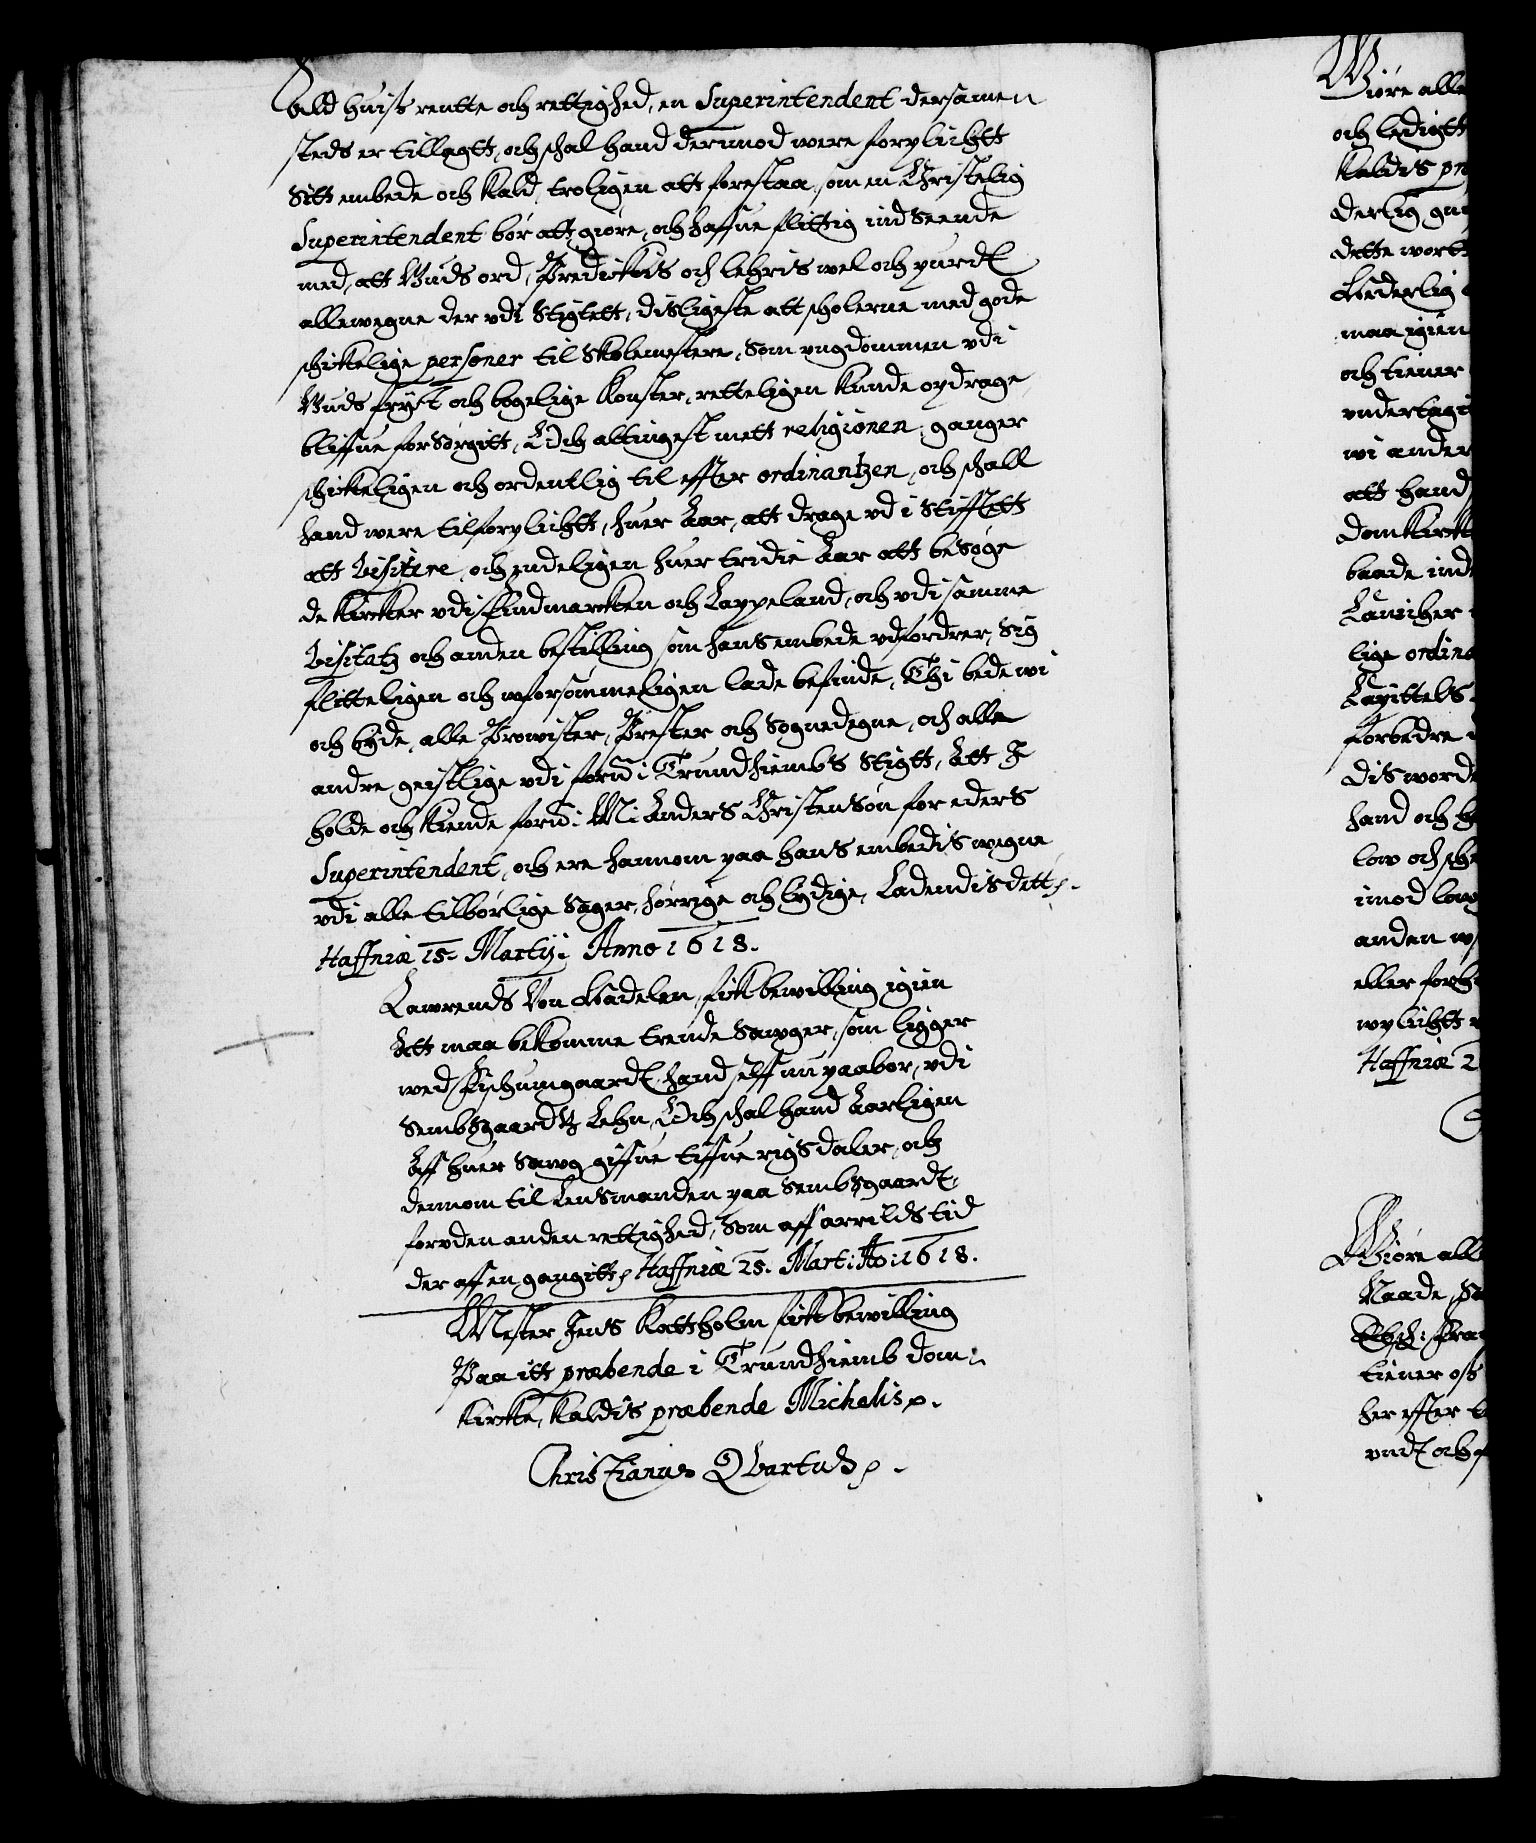 ald huis rentte och rettighed, en Superintendent dersamen
steds er tillagtt, och schal hand derimod were forplichtt
Sitt embede och Kald, troligen att forestaa, som en Christelig
Superintendent bör att giöre, och haffue flittig ind Seende
med, att Guds ord, Predickis och lehris wel och purdt
allewegne der vdi Stigtett, disligeste att scholerne med gode
schickelige personer til Skolemestere, Som vngdommen vdi
Guds frÿct och bogelige Konster, retteligen Kunde opdrage
bliffue for Sörgitt, Och altingest mett religionen, ganger
schickeligen och ordentlig til effter ordinantzen, och schall
hand were tilforplichtt, huer Aar, att drage vd i Stifftett
att Visitere, och endeligen huer tridie Aar att besöge
de Kircker vdi Findmarcken och Lappeland, och vdi samme
Visitatz och anden bestilling som hans embede vdfordrer, Sig
flitteligen och wforsömmeligen lade befinde, Thi bede wi
och byde, alle Prowister, Prester och Sognedegne, och alle
andre geistlige vdi fornd: Trundhiembs Stigtt, Att I
holde och Kiende fornd: M: Anders Christensön for eders
Superintendent, och ere hannom paa hans embedis wegne
vdi alle tilbörlige Sager, hörrige och lydige, Ladendis dett
Haffniæ 15. Martij: Anno 1618.
Lawrends Von Hadelen, fick bewilling igien
Att maa bekomme trende Sawger, som ligger
wed Fischumgaardt, hand selff nu paabor, vdi
Sembsgaardtz Lehn, Och schal hand Aarligen
Aff huer Sawg giffue tiffue rigs daler, och
dennom til Lensmanden paa Sembsgaardt,
foruden anden rettighed, Som aff arrilds tid
der aff en gangitt, Haffniæ 25. Marti: Ao: 1618.
Mester Jens Kattholm fick bewilling
Paa itt præbende i Trundhiemb dom:
Kircke, Kaldis præbende Michelis
Christianus Qvartus
Giöre alle
och ledigtt
Kaldis
dette
maa igien
och tiener
wi ander
att hand
Domkirck
baade ind
lige ordina
Capittels
forbedre
dis
hand och
low och
imod
anden
eller
Haffniæ 2
Giöre all
Naade
tiener oss
her effter
vndt och